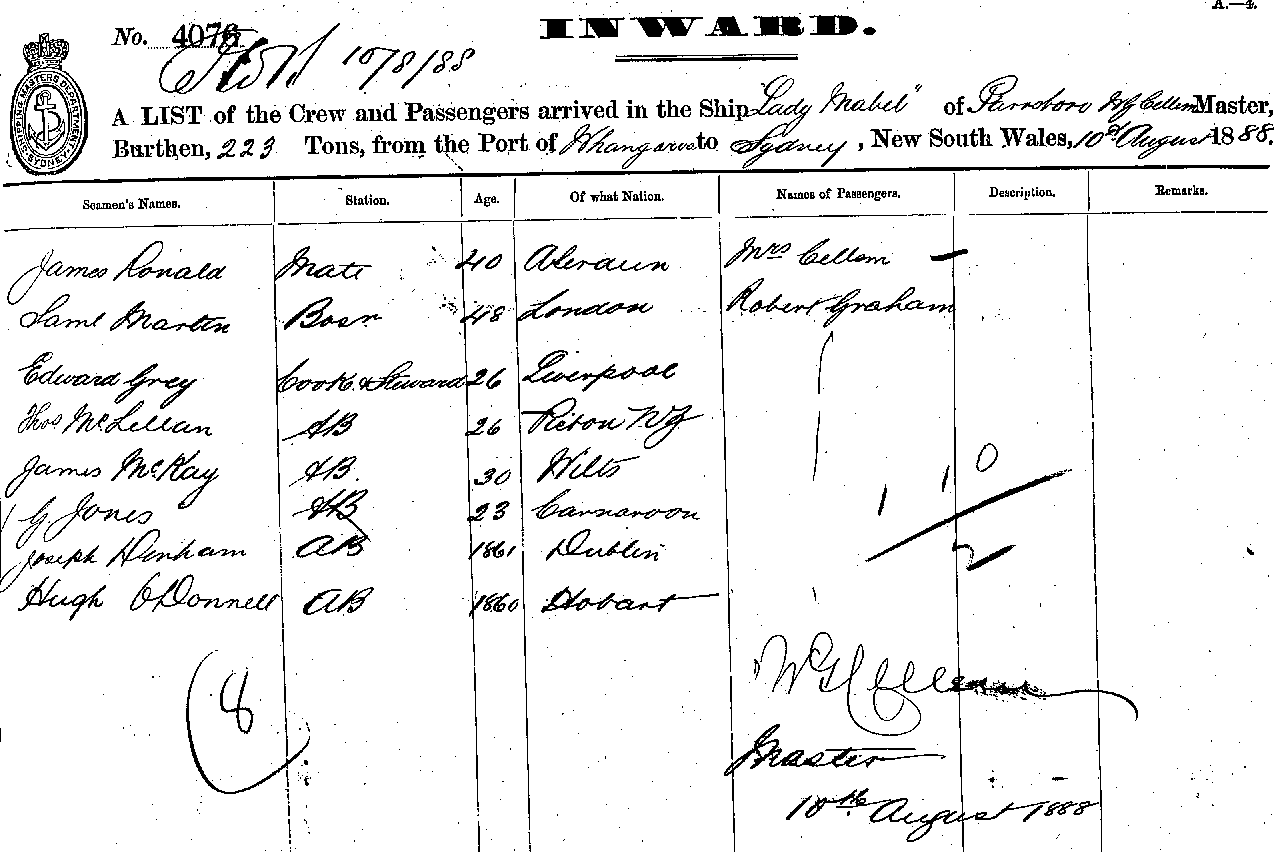 A.—4.
No. 4076
INWARD.
10/8/88
A LIST of the Crew and Passengers arrived in the Ship "Lady Mabel" of Parrsboro W G Cellem Master,
Burthen, 223 Tons, from the Port of Whangaroa to Sydney, New South Wales, 10th August 1888.
SHIPPING MASTERS DEPARTMENT SYDNEY
Seamen's Names. Station. Age. Of what Nation. Names of Passengers. Description. Remarks.
James Ronald Mate 40 Aberdeen Mrs Cellem —
Saml Martin Bosn 48 London Robert Graham
Edward Grey Cook & Steward 26 Liverpool
Thos McLellan AB 26 NZ
James McKay AB. 30 Wilts
G Jones AB 23 Carnarvon
Joseph Denham AB 1861 Dublin
Hugh O'Donnell AB 1860 Hobart
1 1 0
2
8
W G Cellem
Master
10th August 1888